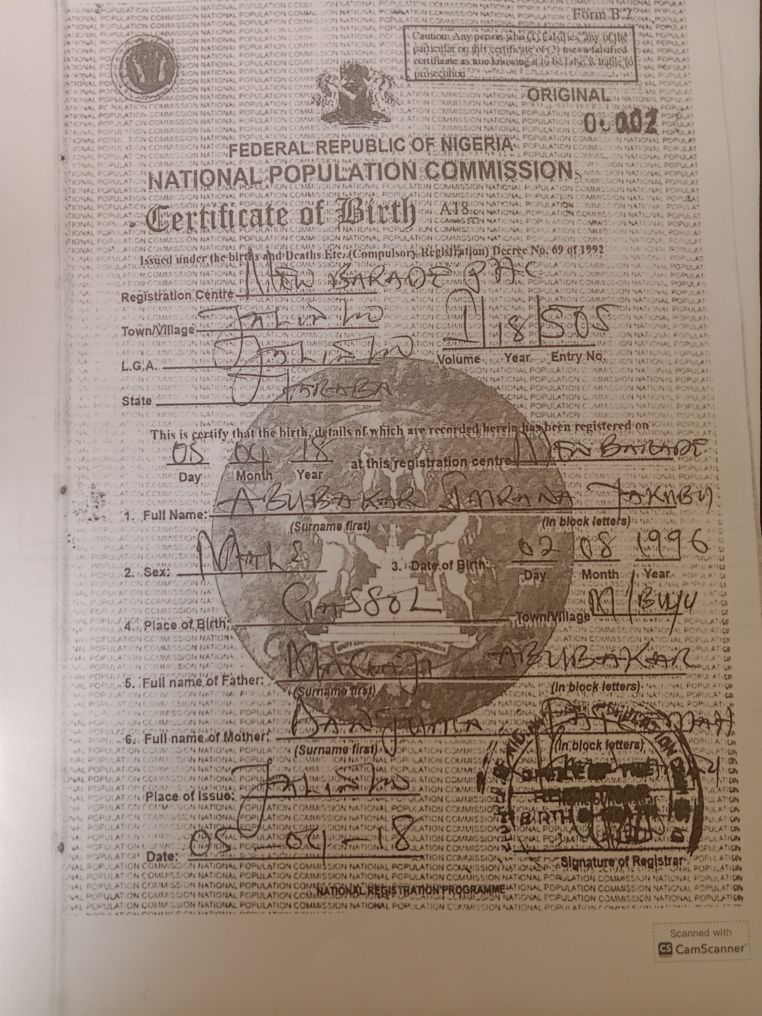 Form B.2
Caution: Any person who (1) falsifies any of the
particular on this certificate of (2) uses a falsified
certificate as true knowing it to be false is liable to
prosecution
ORIGINAL
FEDERAL REPUBLIC OF NIGERIA
NATIONAL POPULATION COMMISSION
Certificate of Birth A18
Issued under the births and Deaths Etc. (Compulsory Registration) Decree No. 69 of 1992
Registration Centre NEW BARADE P.H.C
Town/Village JALINGO
L.G.A. JALINGO
1 18 505
Volume Year Entry No.
State TARABA
This is certify that the birth, details of which are recorded herein has been registered on
05 04 18 at this registration centre NEW BARADE
Day Month Year
1. Full Name: ABUBAKAR IMRANA YAKUBU
(Surname first) (In block letters)
2. Sex: MALE 3. Date of Birth: 02 08 1996
Day Month Year
4. Place of Birth: GASSOL Town/Village M/BIYU
5. Full name of Father: ABUBAKAR
(Surname first) (In block letters)
6. Full name of Mother: DANJUMA
(Surname first) (In block letters)
Place of Issue: JALINGO
Date: 05-04-18
Signature of Registrar
NATIONAL REGISTRATION PROGRAMME
Scanned with
CS CamScanner